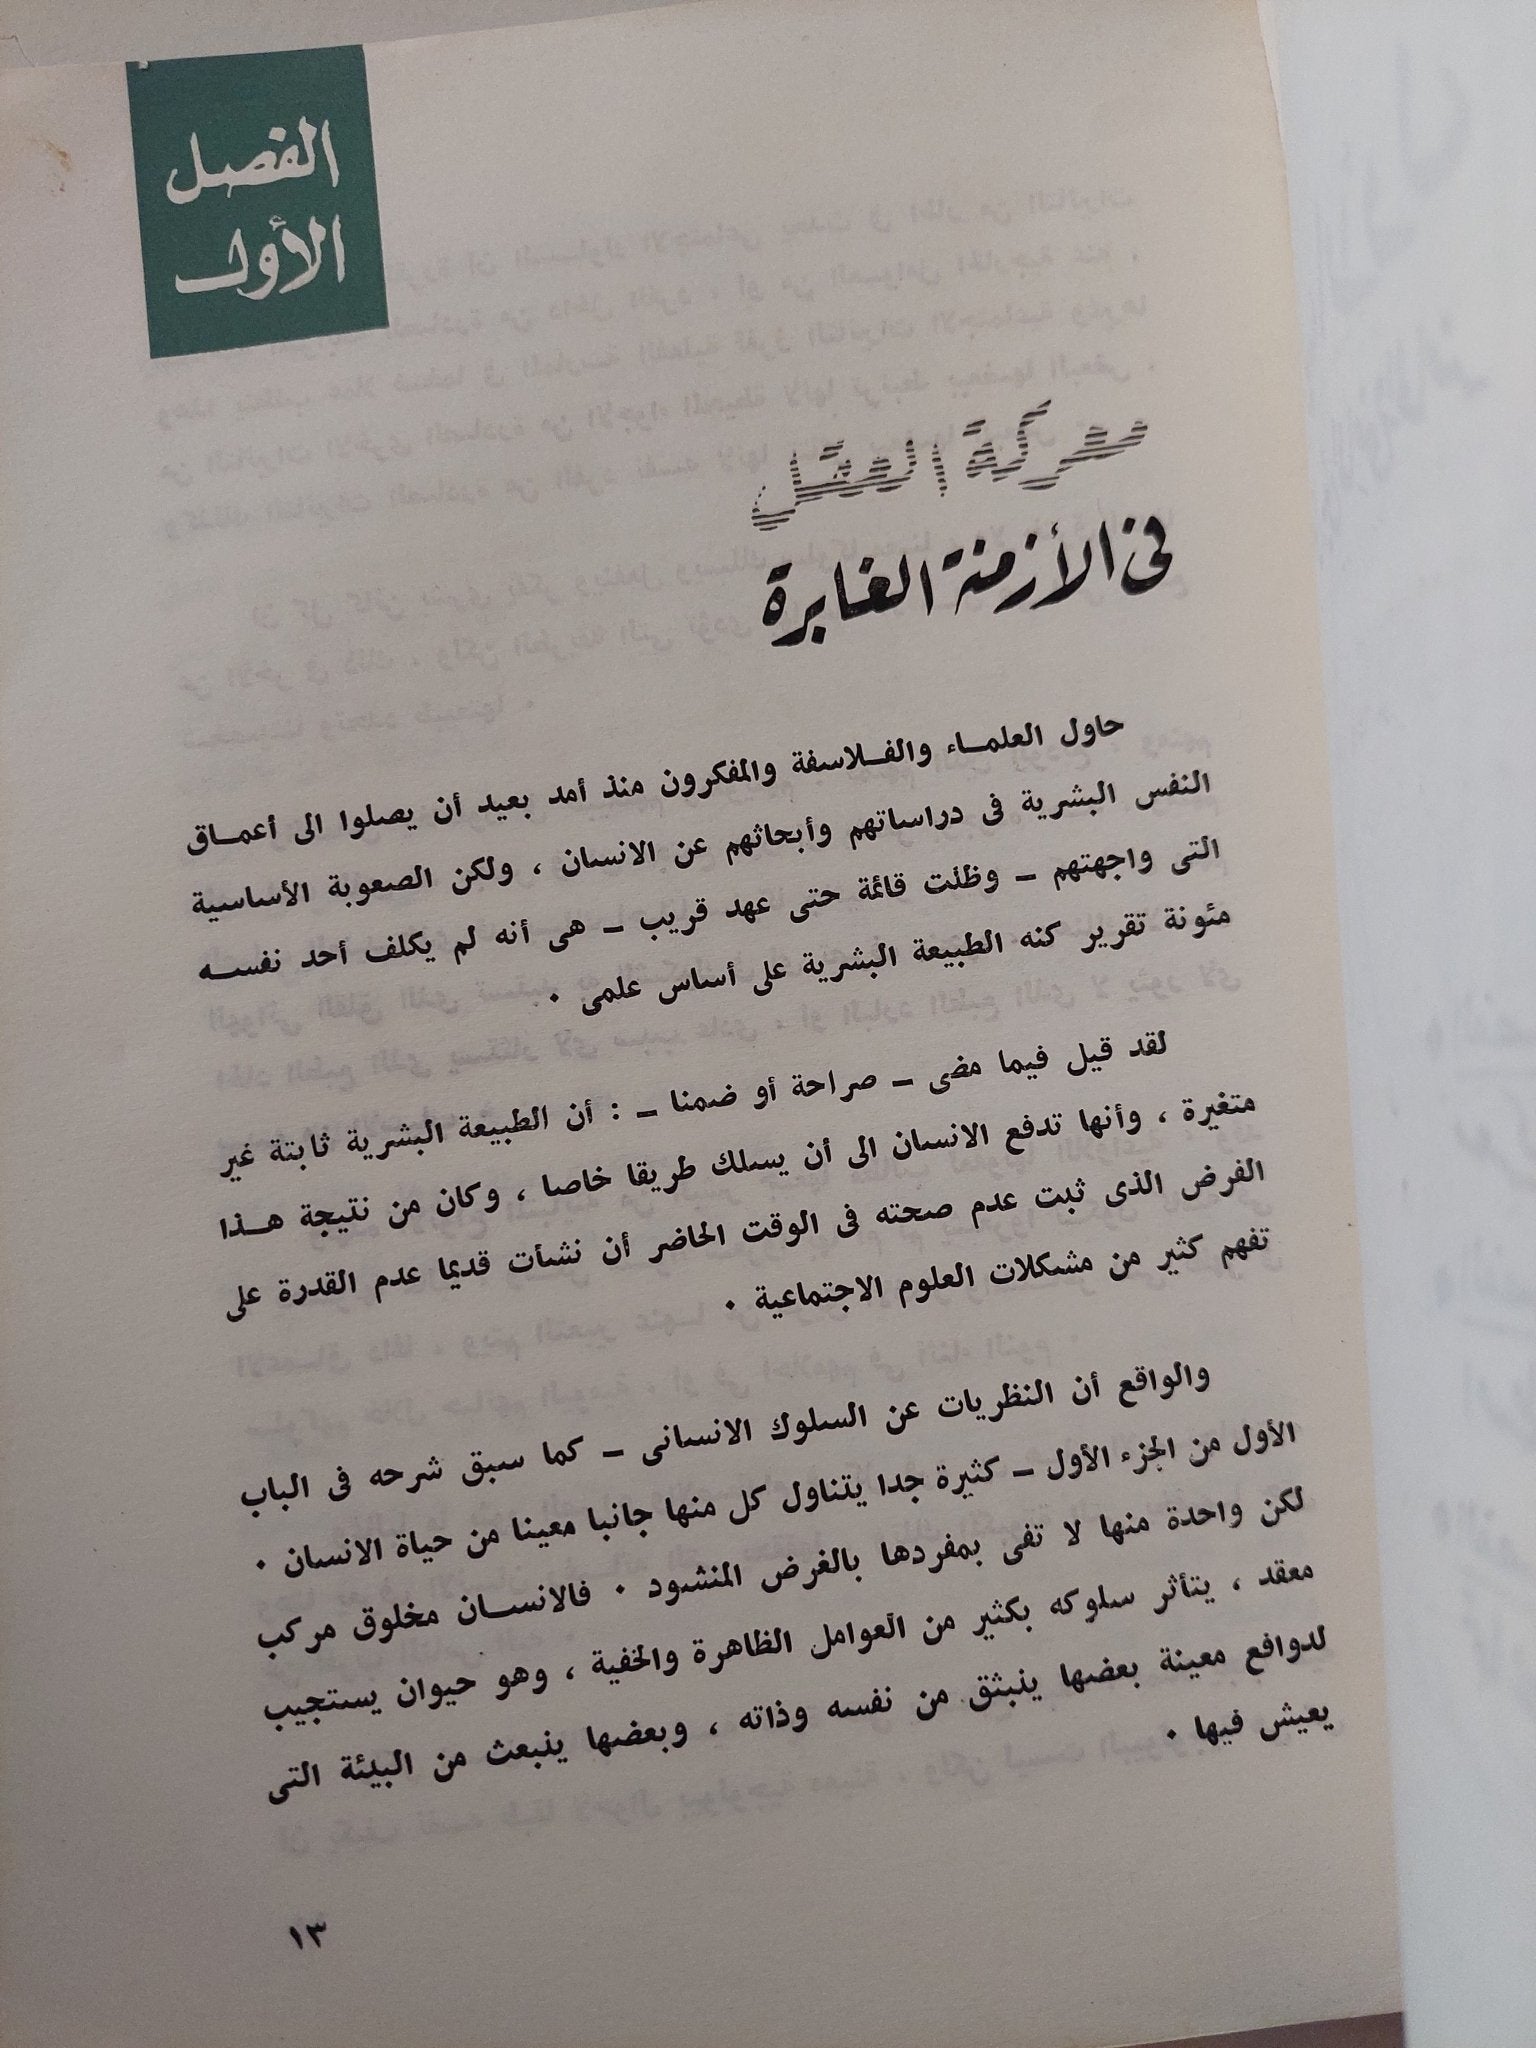 الفصل
الأول
معركة العقل
فى الأزمنة الغابرة
حاول العلمـاء والفـلاسفة والمفكرون منذ أمد بعيد أن يصلوا الى أعمـاق
النفس البشرية فى دراساتهم وأبحاثهم عن الانسان ، ولكن الصعوبة الأساسية
التى واجهتهم – وظلت قائمة حتى عهد قريب – هى أنه لم يكلف أحد نفسـه
مئونة تقرير كنه الطبيعة البشرية على أساس علمى ٠
لقد قيل فيما مضى – صراحة أو ضمنا – : أن الطبيعة البشرية ثابتة غير
متغيرة ، وأنها تدفع الانسان الى أن يسلك طريقا خاصا ، وكان من نتيجة هـذا
الفرض الذى ثبت عدم صحته فى الوقت الحاضر أن نشأت قديما عدم القدرة على
تفهم كثير من مشكلات العلوم الاجتماعية ٠
والواقع أن النظريات عن السلوك الانسانى – كما سبق شرحه فى الباب
الأول من الجزء الأول – كثيرة جدا يتناول كل منها جانبا معينا من حياة الانسان ٠
لكن واحدة منها لا تفى بمفردها بالغرض المنشود ٠ فالانسـان مخلوق مركب
معقد ، يتأثر سلوكه بكثير من العوامل الظاهرة والخفية ، وهو حيوان يستجيب
لدوافع معينة بعضها ينبثق من نفسه وذاته ، وبعضها ينبعث من البيئة التى
يعيش فيها ٠
١٣